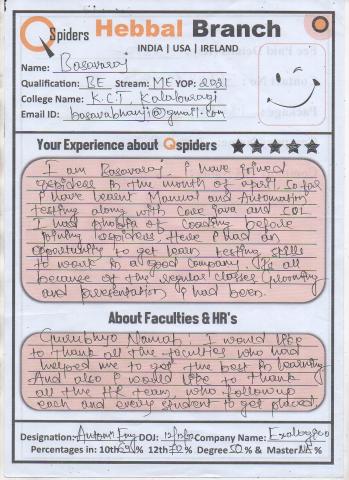 QSpiders Hebbal Branch
INDIA | USA | IRELAND
Name: Basavaraj
Qualification: BE Stream: ME YOP: 2021
College Name: K.C.T, Kalaburagi
Email ID: basavabhanji@gmail.com
Your Experience about Qspiders
I am Basavaraj. I have joined
qspiders in the month of april. So far
I have learnt Manual and Automation
testing along with Core Java and SQL.
I had phobia of Coading before
joining qspiders. Here I had an
opportunity to get learn testing skills
to work in a good Company. It's all
because of the regular classes Grooming
and presentation I had been.
About Faculties & HR's
Gurubhyo Namah: I would like
to thank all the faculties who had
helped me to get the best in learning
And also I would like to thank
all the HR team, who followup
each and every student to get placed.
Designation: Autom Eng DOJ: Company Name:
Percentages in: 10th 12th 70% Degree 50% & Master NA%